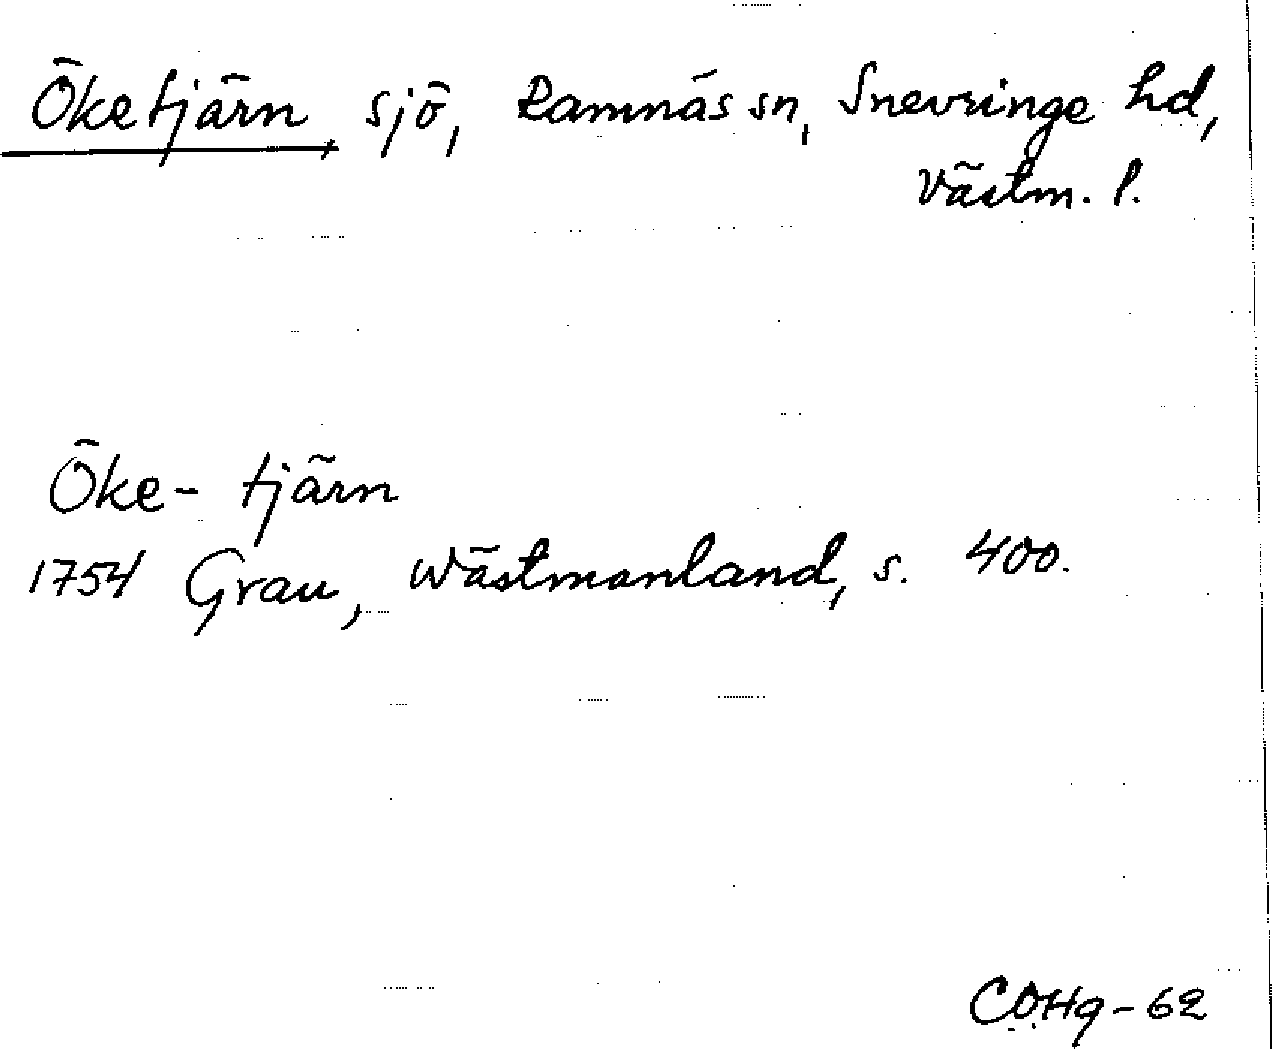 Öketjärn, sjö, Ramnäs sn, Snevringe hd,
Västm. l.
Öke- tjärn
1754 Grau, Wästmanland, s. 400.
COHg-62